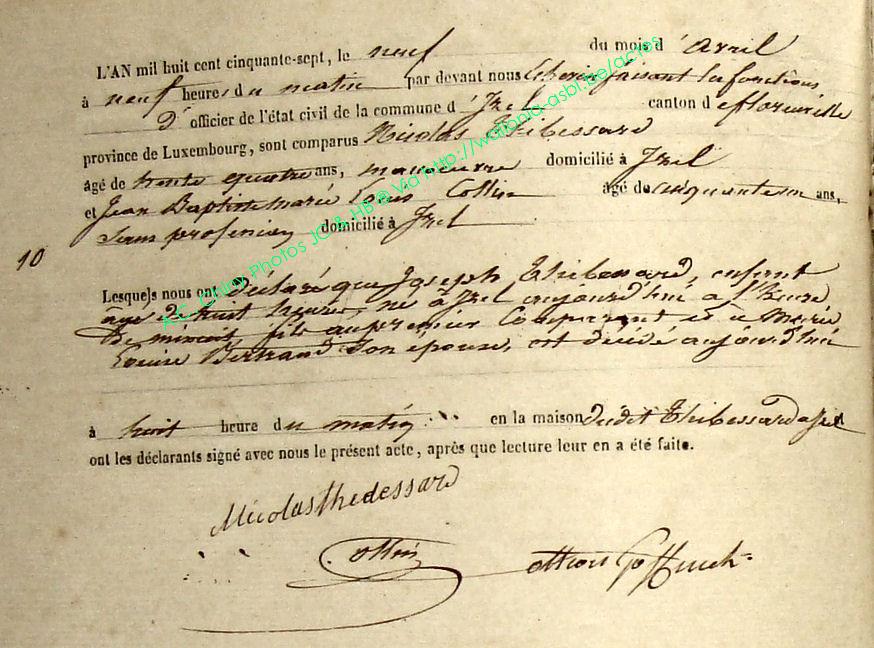 L'AN mil huit cent cinquante-sept, le neuf du mois d'avril
à neuf heures du matin par devant nous Echevin faisant les fonctions
D' officier de l'état civil de la commune d'Izel canton de florenville
province de Luxembourg, sont comparus Nicolas Thibessard
âgé de trente quatre ans, manoeuvre domicilié à Izel
et Jean Baptiste marie Louis Collin âgé de cinquante un ans,
sans profession domicilié à Izel
10
Lesquels nous ont déclaré que Joseph Thibessard, enfant
âgé de huit heures, né à Izel aujourd'hui à l'heure
de minuit fils au premier Comparant et a Marie
Louise Bertrand son épouse, est décédé aujourd'hui
à huit heure du matin en la maison dudit Thibessard a Izel
ont les déclarants signé avec nous le présent acte, après que lecture leur en a été faite.
Nicolas thibessard
Collin
A.C. Chiny Photos JC & HB @ Via http://wallonia-asbl.be/actes